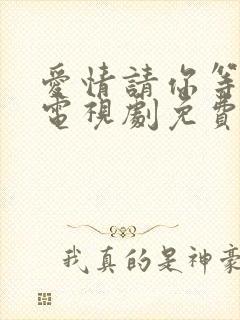 愛情請你等
電視劇免費
我真的是神豪